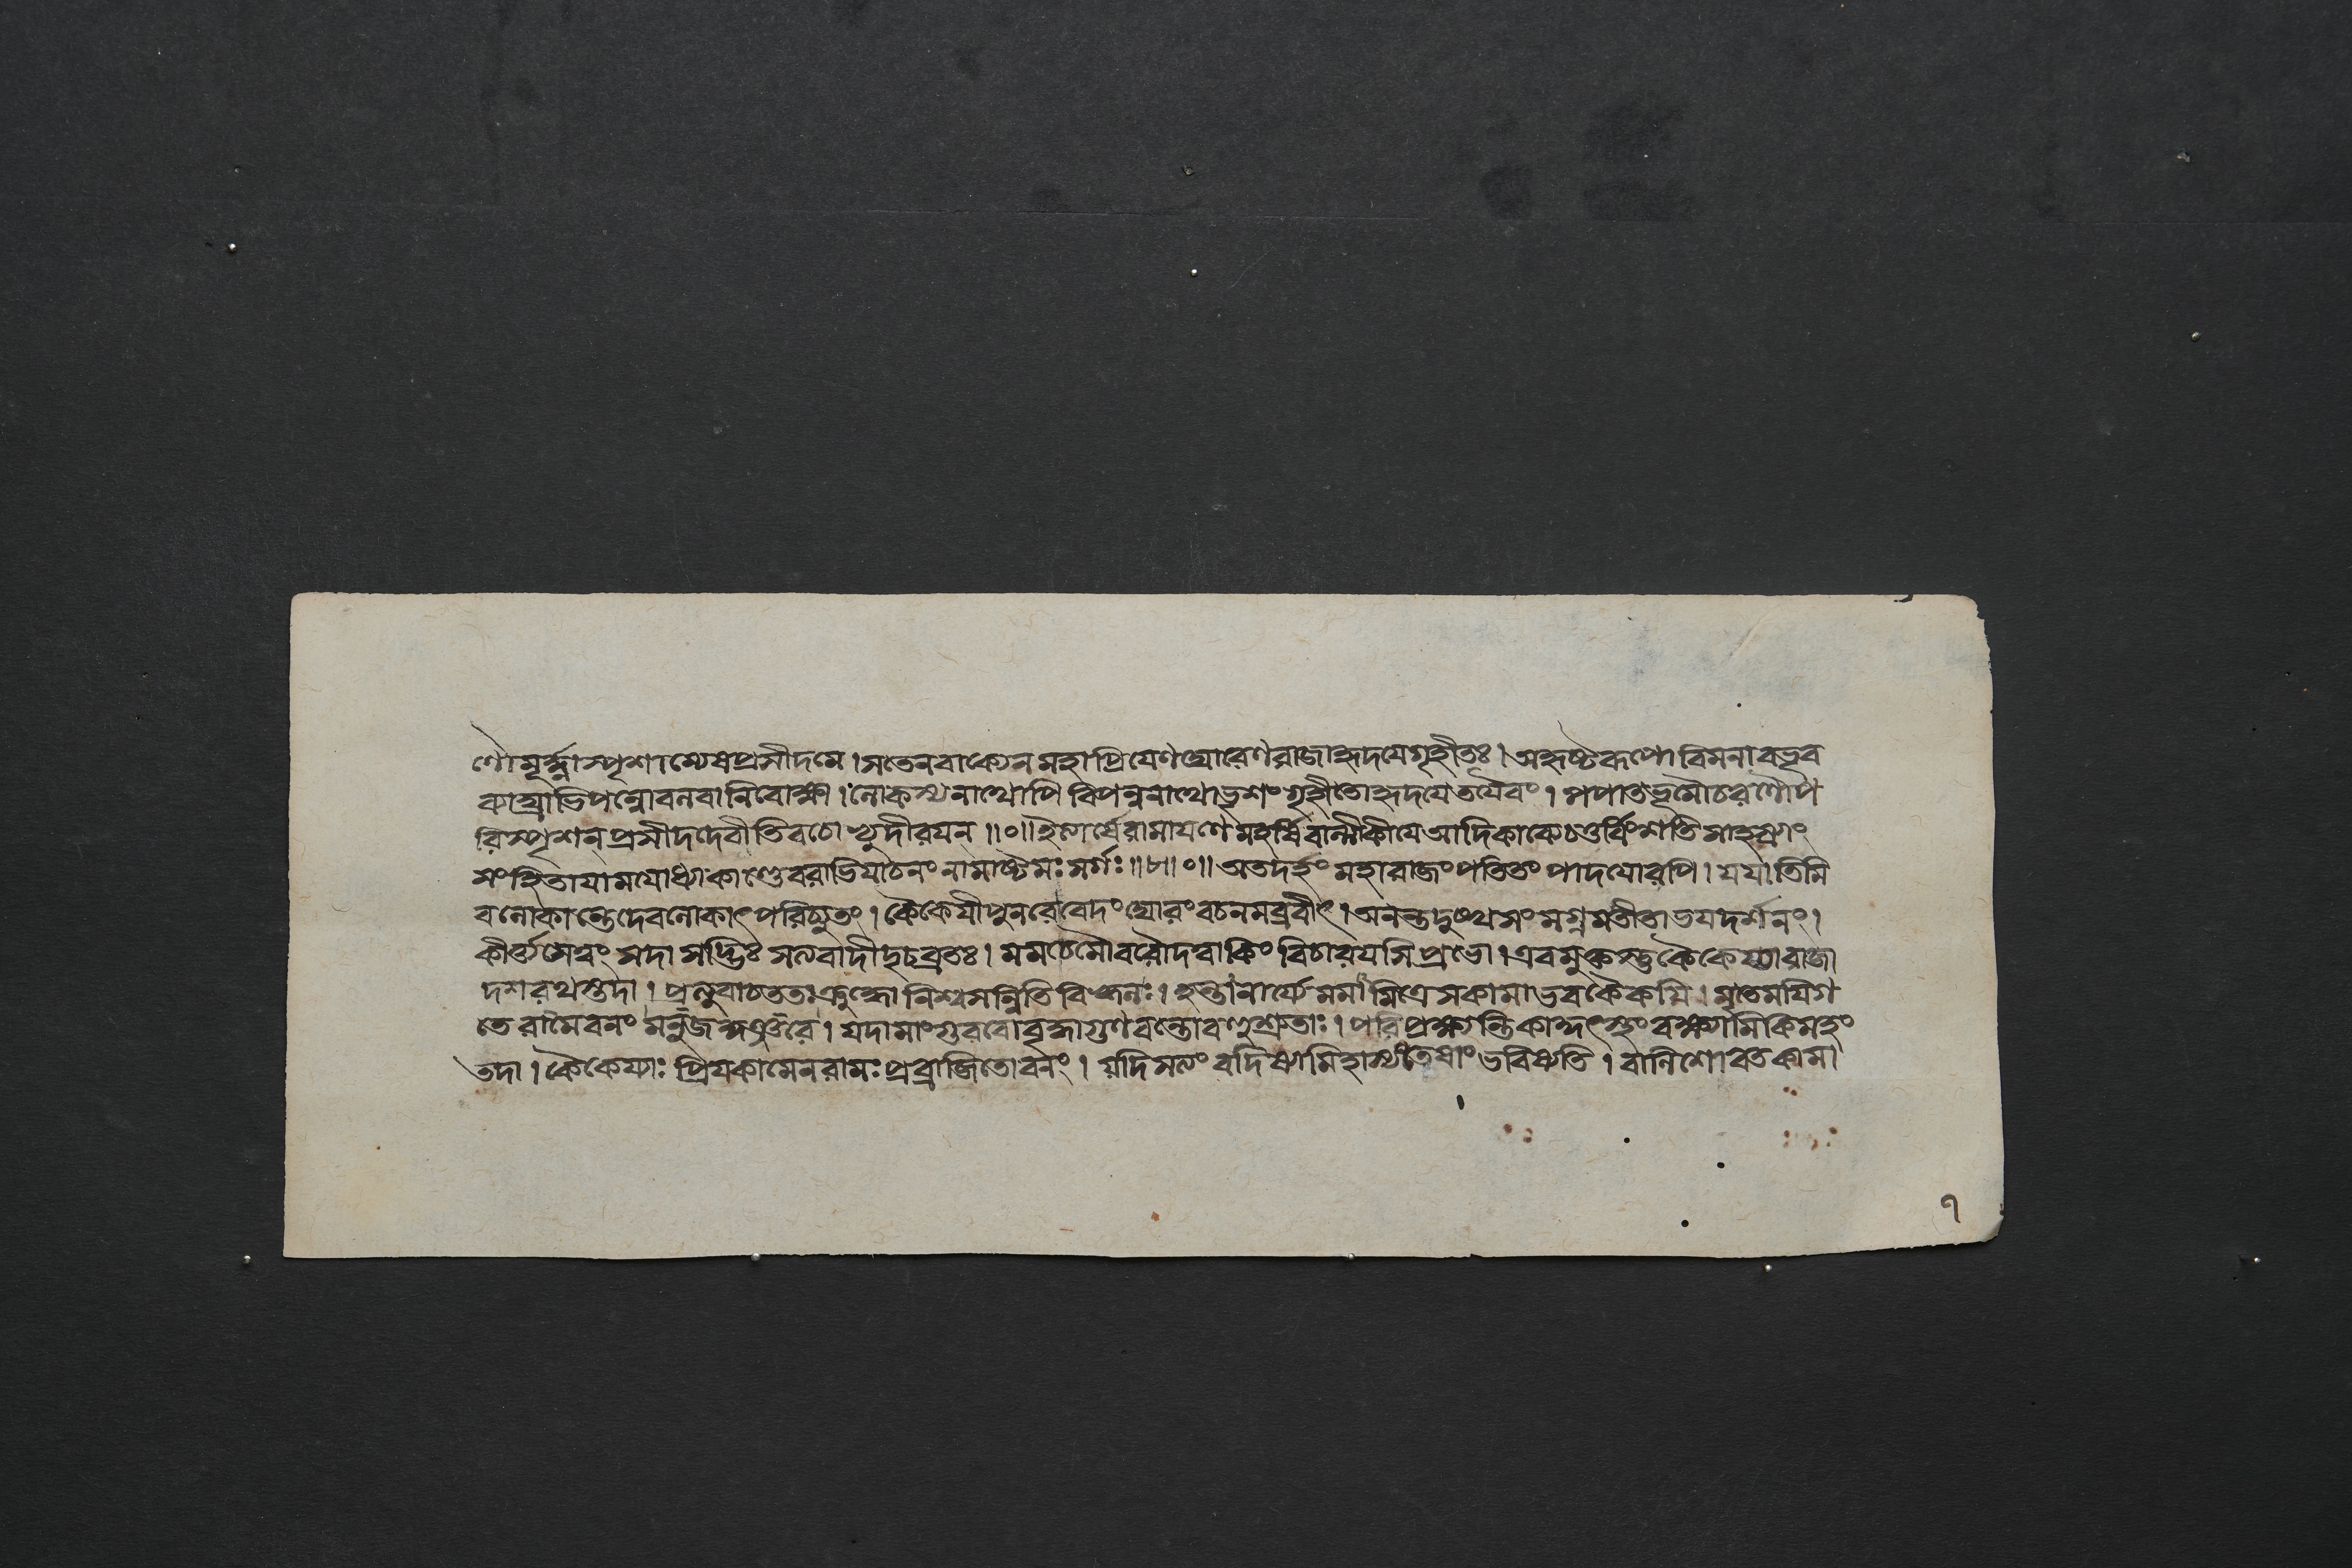 ণৌমূর্দ্ধ্নাস্পৃশাম্যেষপ্রসীদমে। সতেনবাক্যেন মহাপ্রিযেণঘোরেণরাজাহৃদযেগৃহীতঃ। অহৃষ্টৰূপো বিমনাবভূব
ব্যাঘ্রাভিপন্নোবলবানিবোক্ষা। লোকস্যনাথোপি বিপন্ননাথোভৃশংগৃহীতোহৃদযেতযৈবং। পপাতভূমৌচরণৌপ
রিস্পৃশন্ প্রসীদদেবীতিবচোভ্যুদীরযন্॥০॥ইত্যার্ষেরামাযণে মহর্ষিবাল্মীকীযে আদিকাব্যেচতুর্বিংশতিসাহস্র্যাং
সংহিতাযামযোধ্যাকাণ্ডেবরাভিযাচনংনামাষ্টমঃসর্গঃ॥৮॥০॥ অতদর্হংমহারাজংপতিতংপাদযোরপি। যযাতিমি
বলোকান্তেদেবলোকাৎপরিচ্যুতং। কৈকেযীপুনরেবেদংঘোরংবচনমব্রবীৎ। অনন্তদুঃখসংমগ্নমতীতাভযদর্শনং।
কীর্ত্ত্যসেত্বং সদা সদ্ভিঃ সত্যবাদীদৃঢব্রতঃ। মমচেমৌবরৌদত্বাকিংবিচারযসি প্রভো। এবমুক্তস্তুকৈকেয্যারাজা
দশরথস্তদা। প্রত্যুবাচততঃক্রুদ্ধো নিশ্বসন্নিতিবিহ্বলঃ। হন্তানার্যেমমামিত্রেসকামাভবকৈকযি। মৃতেমযিগ
তেরামেবনং মনুজকুঞ্জরে। যদামাংগুরবোবৃদ্ধাগুণবন্তোবহুশ্রুতাঃ। পরিপ্রক্ষ্যন্তিকাকুৎস্থংবক্ষ্যামিকিমহং
তদা। কৈকেয্যাঃ প্রিযকামেনরামঃপ্রব্রাজিতোবনং। যদিসত্যংবদিষ্যামিহাস্যতেষাংভবিষ্যতি। বালিশোবতকামা
৭